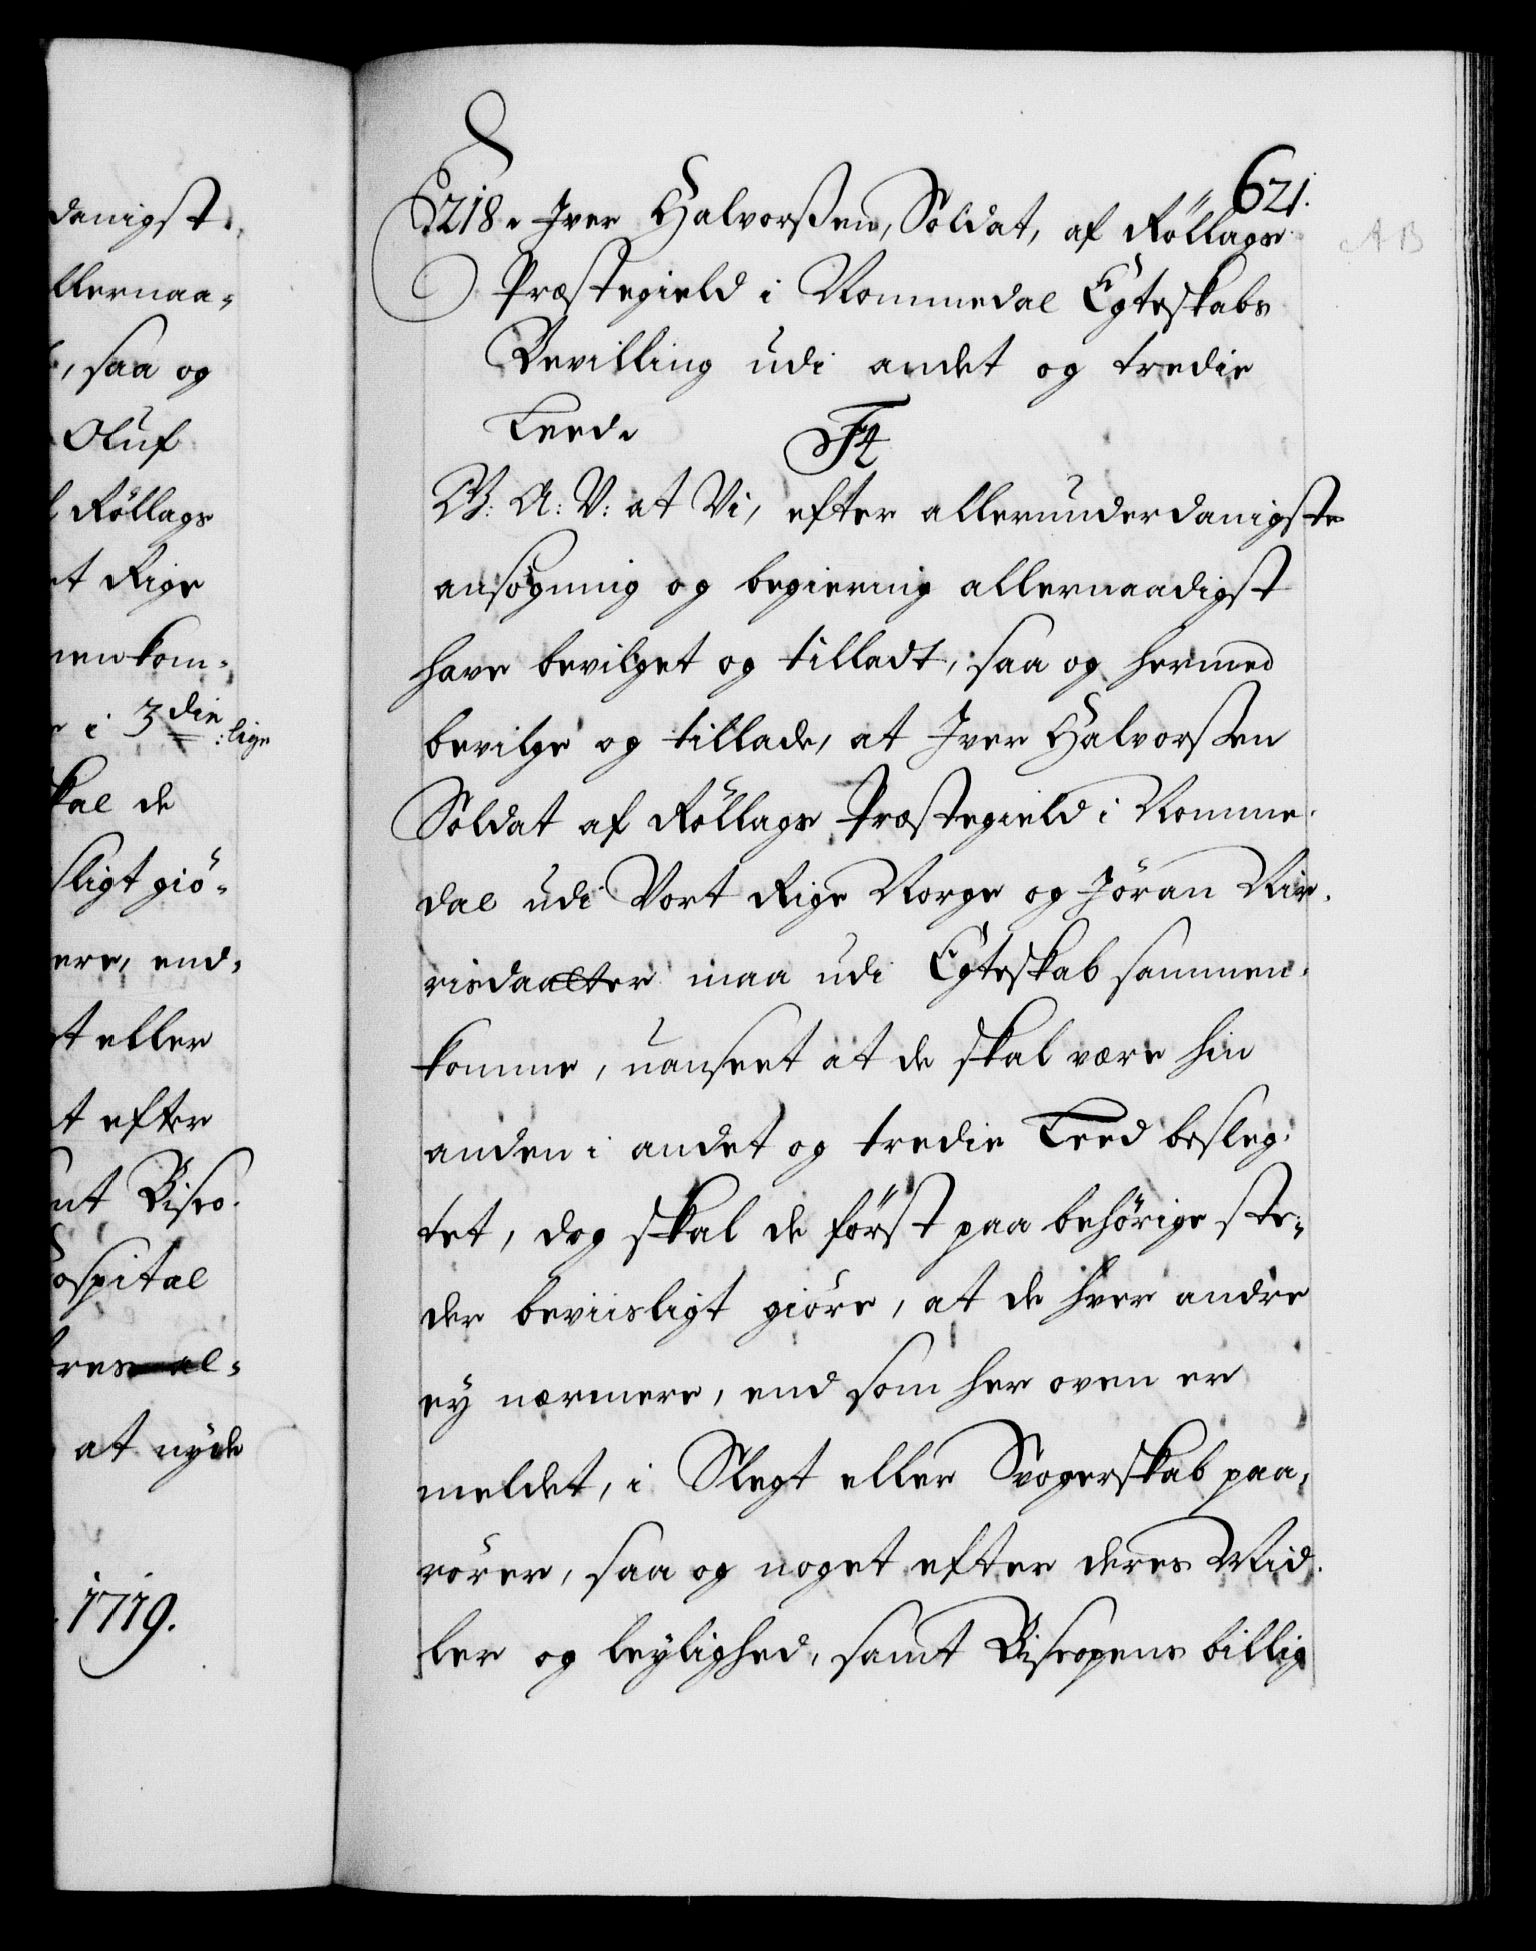 danigst
llernaa-
, saa og
Oluf
Röllags
et Rige
menkom-
i 3die
:lige
skal de
sligt giö-
ere, end-
t eller
t efter
mt Bisco-
Hospital
eres al-
at nyde
1719.
621.
AB
218. Iver Halvorßen, Soldat, af Röllags
Præstegield i Nommedal Egteskabs
Bevilling udi andet og tredie
Leed.
F4
G: A: V: at Vi, efter allerunderdanigste
ansögning og begiering allernaadigst
have bevilget og tilladt, saa og hermed
bevilge og tillade, at Iver Halvorßen
Soldat af Röllags Præstegield i Nomme-
dal udi Vort Rige Norge og Jöran Nir-
risdaatter maa udi Egteskab sammen-
komme, uanseet at de skal være hin
anden i andet og tredie Leed besleg-
tet, dog skal de först paa behörige ste-
der beviisligt giöre, at de hver andre
ey nærmere, end som her oven er
meldet, i Slegt eller Svogerskab paa-
rörer, saa og noget efter deres Mid-
ler og leylighed, samt Biscopens billig